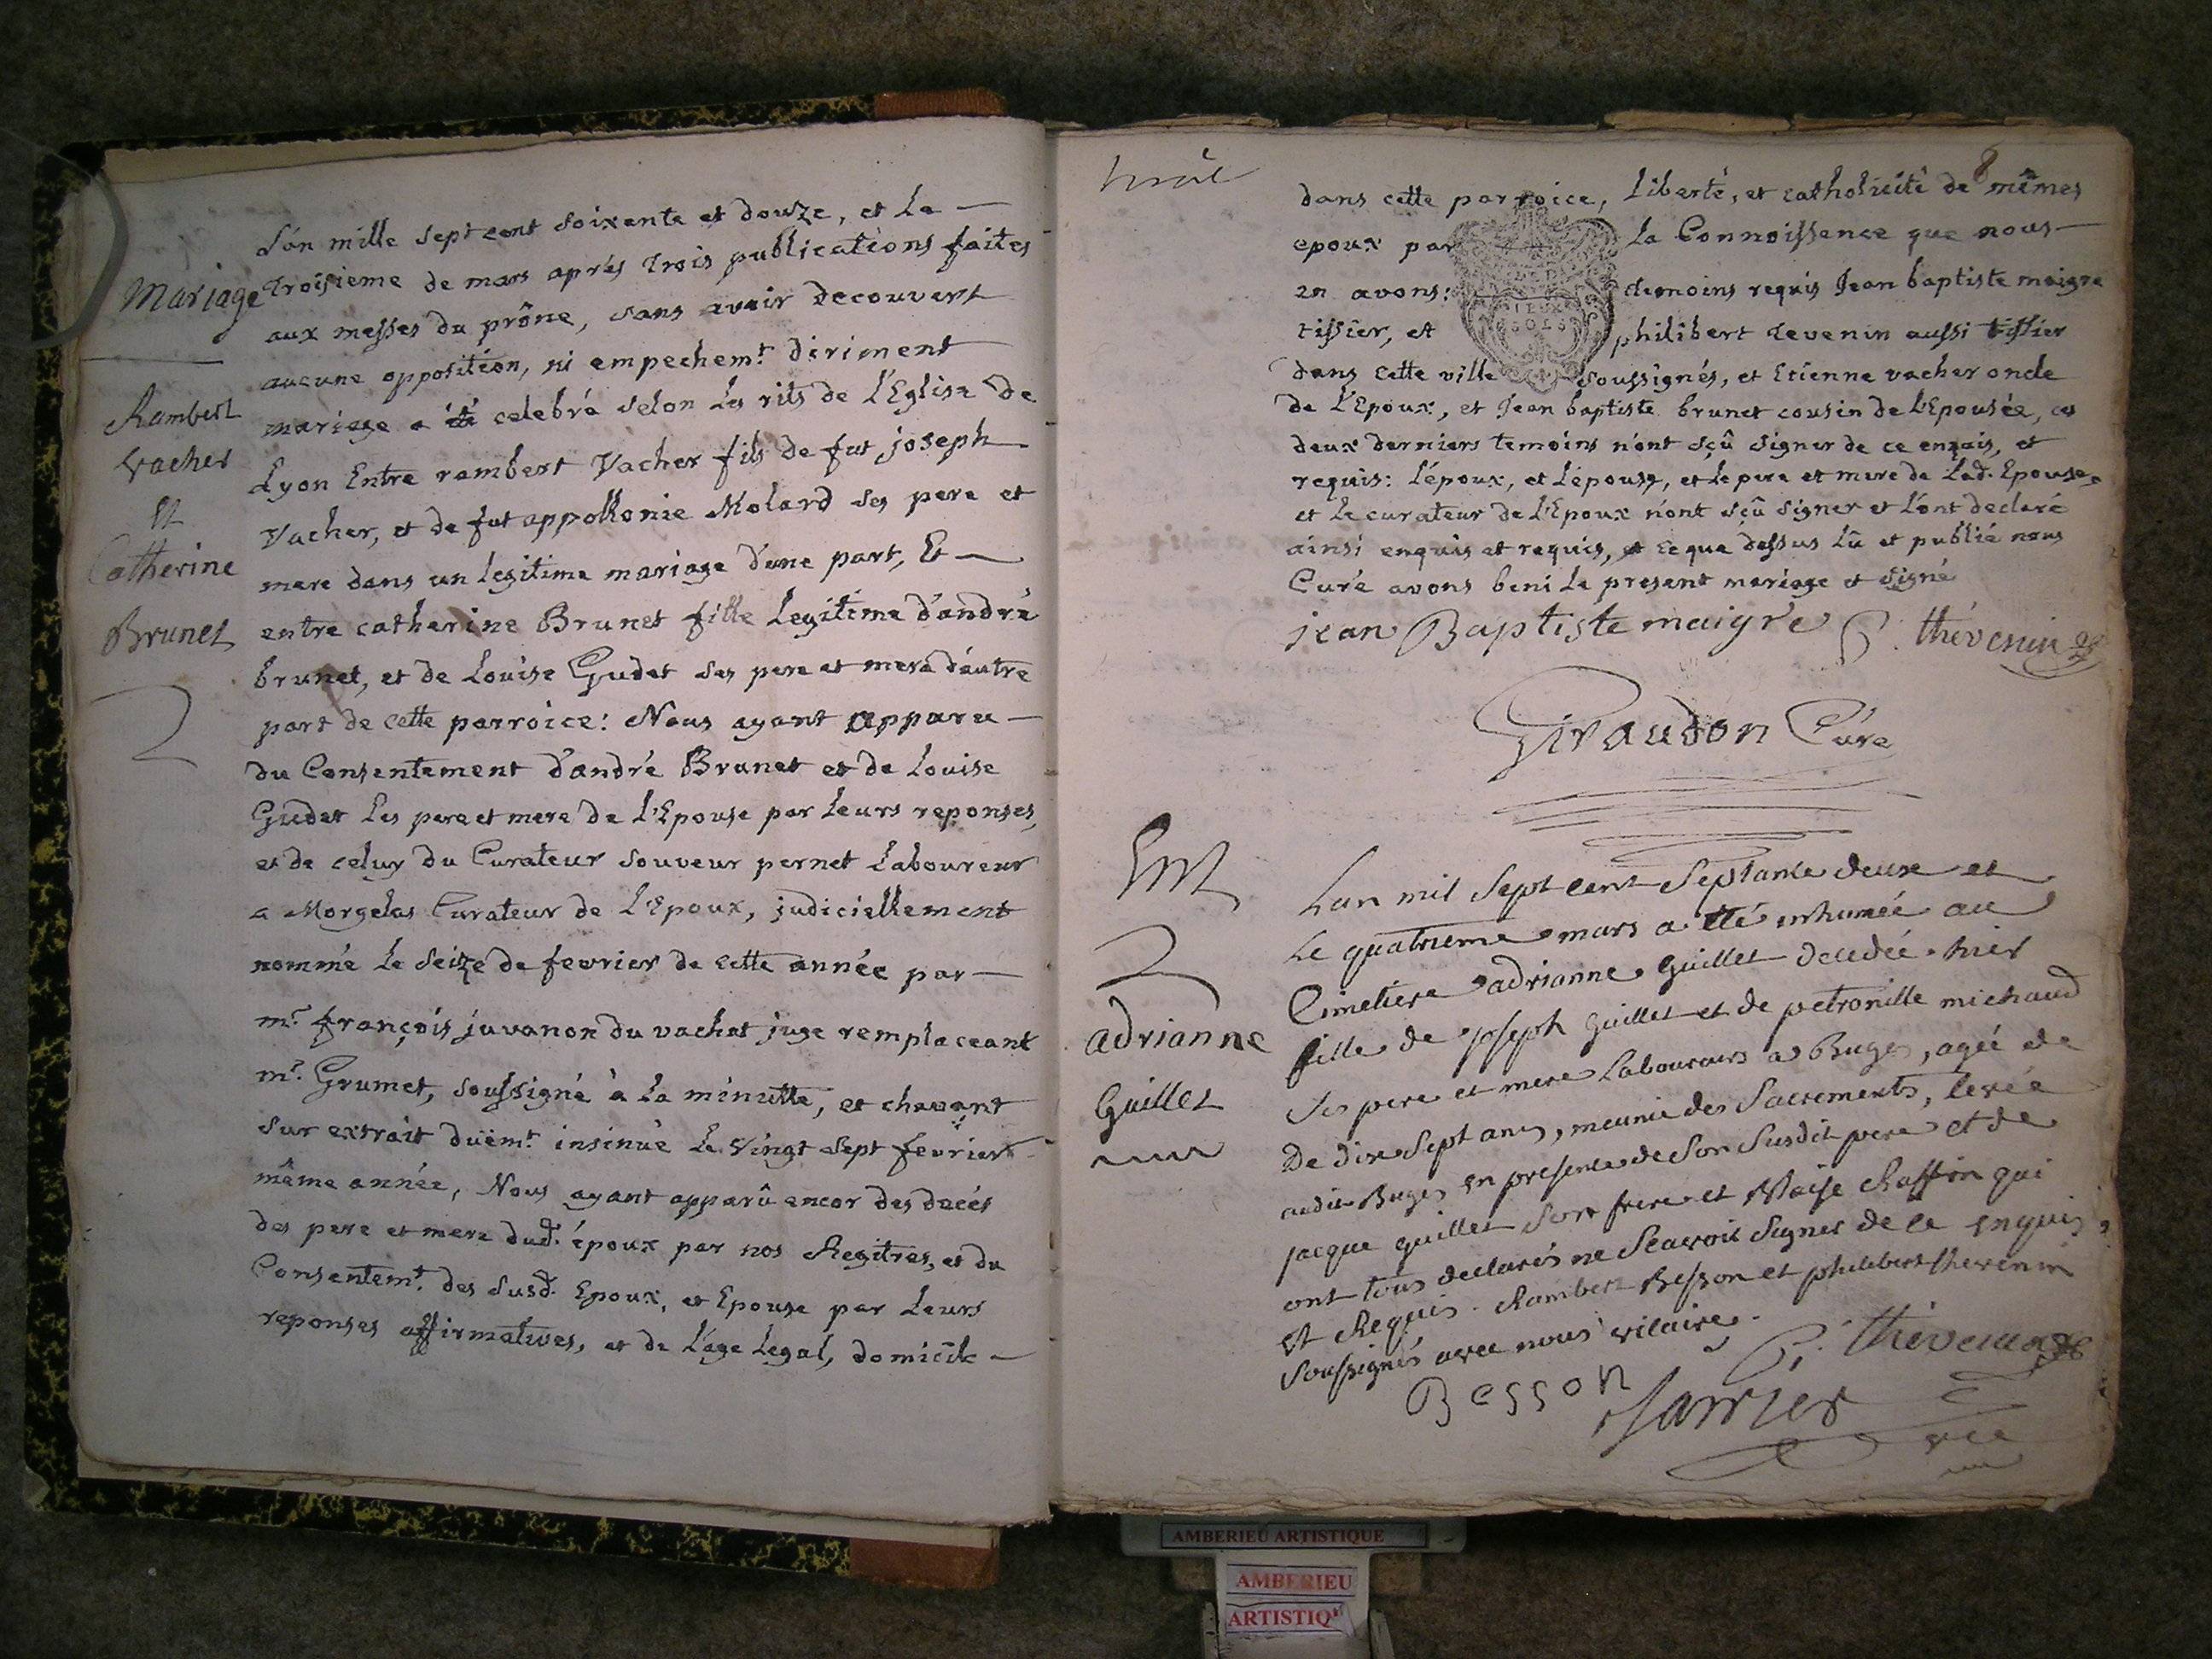 Mariage
Rambert
Vacher
Et
Catherine
Brunet
L'an mille sept cent soixente et douze, et Le —
troisieme de mars aprés trois publications faites
aux messes du prône, sans avoir decouvert
aucune opposition, ni empechemt. diriment
mariage a été celebré selon Les rits de L'Eglise de
Lyon Entre rambert Vacher fils de fut joseph
Vacher, et de fut appollonie Molard ses pere et
mere dans un legitime mariage d'une part, Et —
entre catherine Brunet fille Legitime d'andré
brunet, et de Louise Gudet ses pere et mere d'autre
part de cette parroice: Nous ayant apparu —
du Consentement d'andré Brunet et de Louise
Gudet Les pere et mere de L'Epouse par Leurs reponses,
et de celuy du Curateur souveur pernet Laboureur
a Morgelas Curateur de L'Epoux, judiciellement
nommé Le seize de fevrier de cette année par —
mr. françois juvanon du vachat juge remplaceant
mr. Grumet, soussigné à La minutte, et chavant
sur extrait düemt. insinué Le vingt sept fevrier
même année, Nous ayant apparû encor des decés
des pere et mere dud. époux par nos Regitres, et du
Consentemt. des susd. Epoux, et Epouse par Leurs
reponses affirmatives, et de L'age Legal, domicile —
8
dans cette parroice, Liberté, et catholicité de mêmes
epoux par La Connoissence que nous —
en avons: temoins requis Jean baptiste maigre
tissier, et philibert tevenin aussi tissier
dans cette ville soussignés, et Etienne vacher oncle
de L'Epoux, et Jean baptiste brunet cousin de L'Epousée, ces
deux derniers temoins n'ont sçû signer de ce enquis, et
requis: L'époux, et L'épouse, et Le pere et mere de Lad. Epouse,
et Le curateur de L'Epoux n'ont sçû signer et L'ont declaré
ainsi enquis et requis, et ce que dessus Lû et publié nous
Curé avons beni Le present mariage et signé
jean Baptiste maigre P. thévenin
Giraudon Curé
DEUX
SOLS
Ent
adrianne
Guillet
Lan mil Sept cent Septante deux et
Le quatrieme mars a été inhumée au
Cimetiere adrianne Guillet decedée hier
fille de joseph Guillet et de petronille michaud
Ses pere et mere Laboureurs a Buges, agée de
De dix Sept ans, meunie des Sacrements, levée
audit Buges en presence de Son Susdit pere et de
jacque guillet Son frere et Moise Ruffin qui
ont tous declarés ne Scavoir Signer de ce enquis
et Requis. Rambert Besson et philibert thevenin
Soussignés avec nous vicaire.
P. thévenin
Besson
vic
AMBERIEU ARTISTIQUE
AMBERIEU
ARTISTIQ